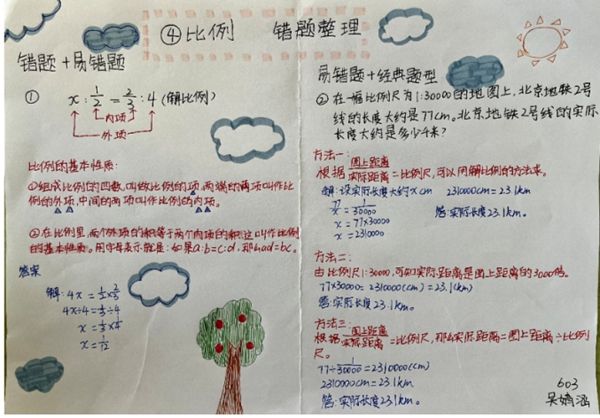 ④比例 错题整理
错题+易错题
① x:1/2=2/3:4(解比例)
内项
外项
比例的基本性质:
①组成比例的四个数,叫做比例的项,两端的两项叫作比
例的外项,中间的两项叫作比例的内项。
②在比例里,两个外项的积等于两个内项的积,这叫作比例
的基本性质。用字母表示就是:如果a:b=c:d,那么ad=bc。
答案
解:4x=1/2×2/3
4x÷4=1/3÷4
x=1/3×1/4
x=1/12
易错题+经典题型
②在一幅比例尺为1:30000的地图上,北京地铁2号
线的长度大约是77cm。北京地铁2号线的实际
长度大约是多少千米?
方法一:
根据图上距离/实际距离=比例尺,可以用解比例的方法求。
解:设实际长度大约x cm 2310000cm=23.1km
77/x=1/30000 答:实际长度23.1km。
x=77×30000
x=2310000
方法二:
由比例尺1:30000,可知实际距离是图上距离的30000倍。
77×30000=2310000(cm)=23.1(km)
答:实际长度23.1km。
方法三:
根据图上距离/实际距离=比例尺,那么实际距离=图上距离÷比例
尺。
77÷1/30000=2310000(cm)
2310000cm=23.1km
答:实际长度23.1km。
603
吴
涵